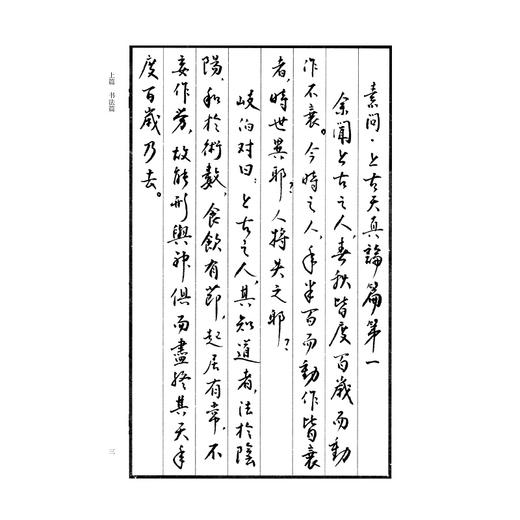 素问·上古天真論篇第一
余聞上古之人,春秋皆度百歲而動
作不衰。今時之人,年半百而動作皆衰
者,時世異耶?人將失之耶?
岐伯对曰:上古之人,其知道者,法於陰
陽,和於術數,食飲有節,起居有常,不
妄作劳,故能形與神俱而盡終其天年
度百歲乃去。
上篇 书法篇
三